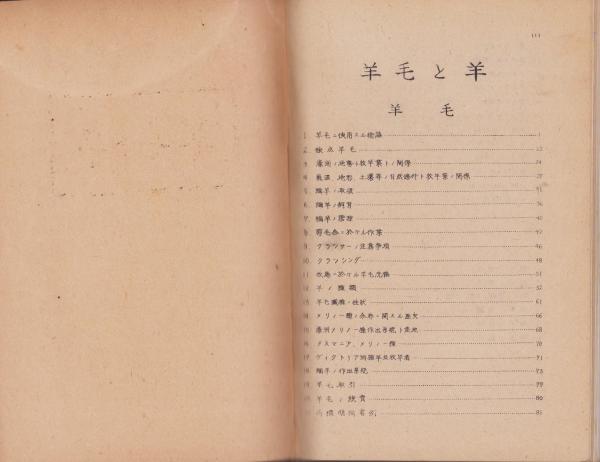 羊毛と羊
羊毛
1 羊毛ニ使用スル
2 羊毛
3 濠洲ノ地勢ト牧羊業トノ関係
4 気温、地形、土壌等ノ自然條件ト牧羊業ノ関係
5 緬羊ノ
6 緬羊ノ飼育 36
7 緬羊ノ管理 40
8 剪毛舎ニ於ケル作業 42
9 クラッサーノ注意事項 46
10 クラッシング 48
11 牧場ニ於ケル羊毛 51
12 羊ノ種類 52
13 羊毛繊維ノ性状 61
14 メリノー種ノ ニ関スル歴史 66
15 濠洲メリノー種作出系統ト産地 68
16 タスマニア、メリノー種 70
17 ヴィクトリア州緬羊並牧羊者 71
18 緬羊ノ作出系統 73
19 羊毛取引 79
20 羊毛ノ競賣 80
85